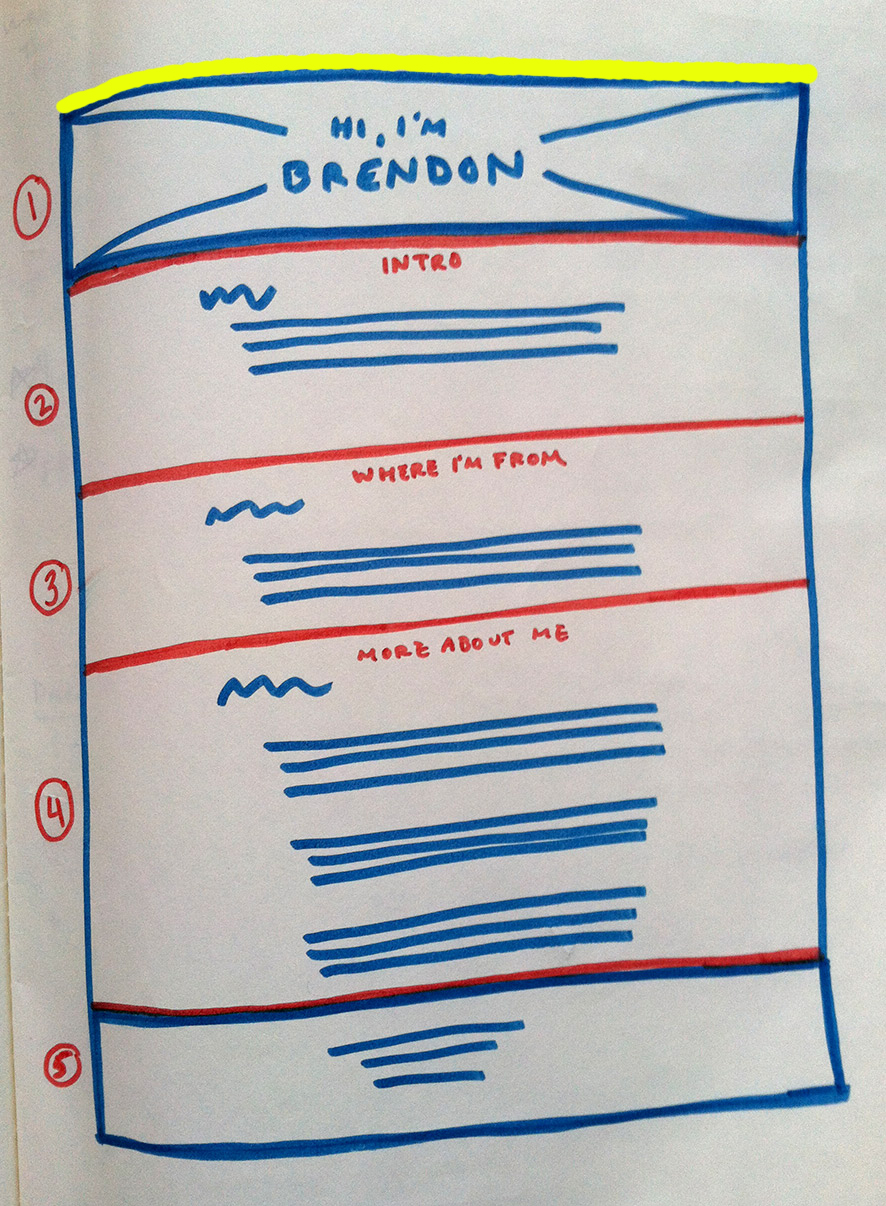 HI, I'M
BRENDON
1
INTRO
2
WHERE I'M FROM
3
MORE ABOUT ME
4
5